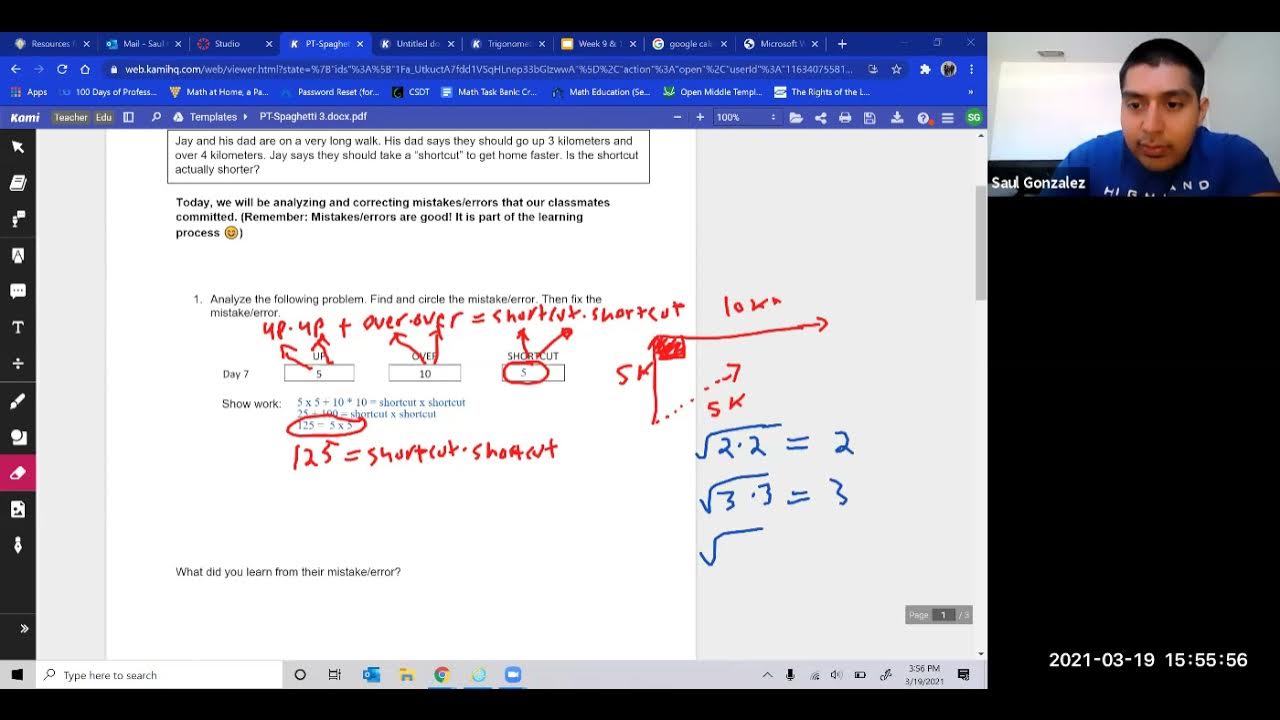 Resources f
Mail - Saul
Studio
PT-Spaghet
Untitled do
Trigonomet
Week 9 & 1
google calc
Microsoft W
web.kamihq.com/web/viewer.html?state=%7B"ids"%3A%5B"1Fa_UtkuctA7fdd1VSqHLnep33bGIzwwA"%5D%2C"action"%3A"open"%2C"userId"%3A"11634075581...
Apps
100 Days of Profess...
Math at Home, a Pa...
Password Reset (for...
CSDT
Math Task Bank: Cr...
Math Education (Se...
Open Middle Templ...
The Rights of the L...
»
Kami
Teacher
Edu
Templates
PT-Spaghetti 3.docx.pdf
100%
SG
Jay and his dad are on a very long walk. His dad says they should go up 3 kilometers and
over 4 kilometers. Jay says they should take a "shortcut" to get home faster. Is the shortcut
actually shorter?
Saul Gonzalez
HIGHLAND
Today, we will be analyzing and correcting mistakes/errors that our classmates
committed. (Remember: Mistakes/errors are good! It is part of the learning
process 😊)
1. Analyze the following problem. Find and circle the mistake/error. Then fix the
mistake/error.
up·up + over·over = shortcut·shortcut
10 km
UP
OVER
SHORTCUT
Day 7
5
10
5
5 K
5 K
Show work:
5 x 5 + 10 * 10 = shortcut x shortcut
25 + 100 = shortcut x shortcut
125 = 5 x 5
125 = shortcut·shortcut
√2·2 = 2
√3·3 = 3
√
What did you learn from their mistake/error?
Page 1 / 3
Type here to search
3:56 PM
3/19/2021
2021-03-19 15:55:56